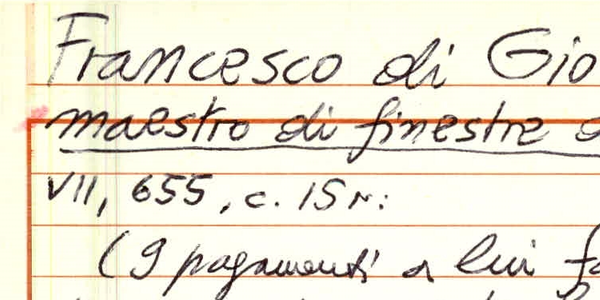 Francesco di Gio
maestro di finestre
VII, 655, c. 15 r:
(9 pagamenti a lui fa